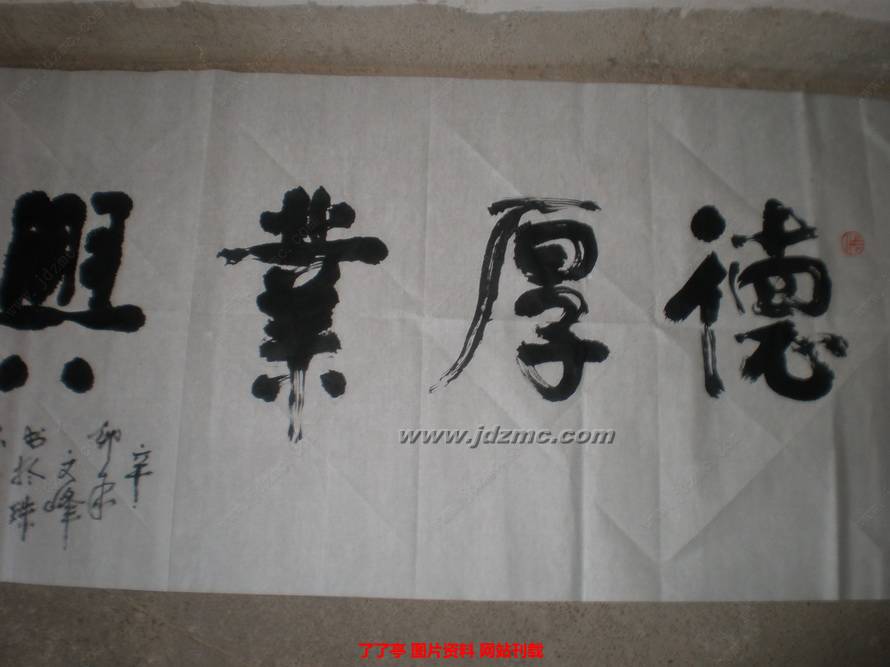 德厚業興
辛
卯年
文峰
书于珠
www.jdzmc.com
了了亭 图片资料 网站刊载